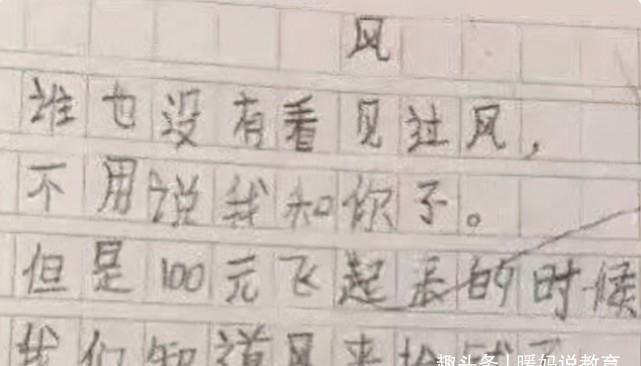 风
谁也没有看见过风，
不用说我和你了。
但是100元飞起来的时候
我们知道风来
趣头条 | 暖妈说教育